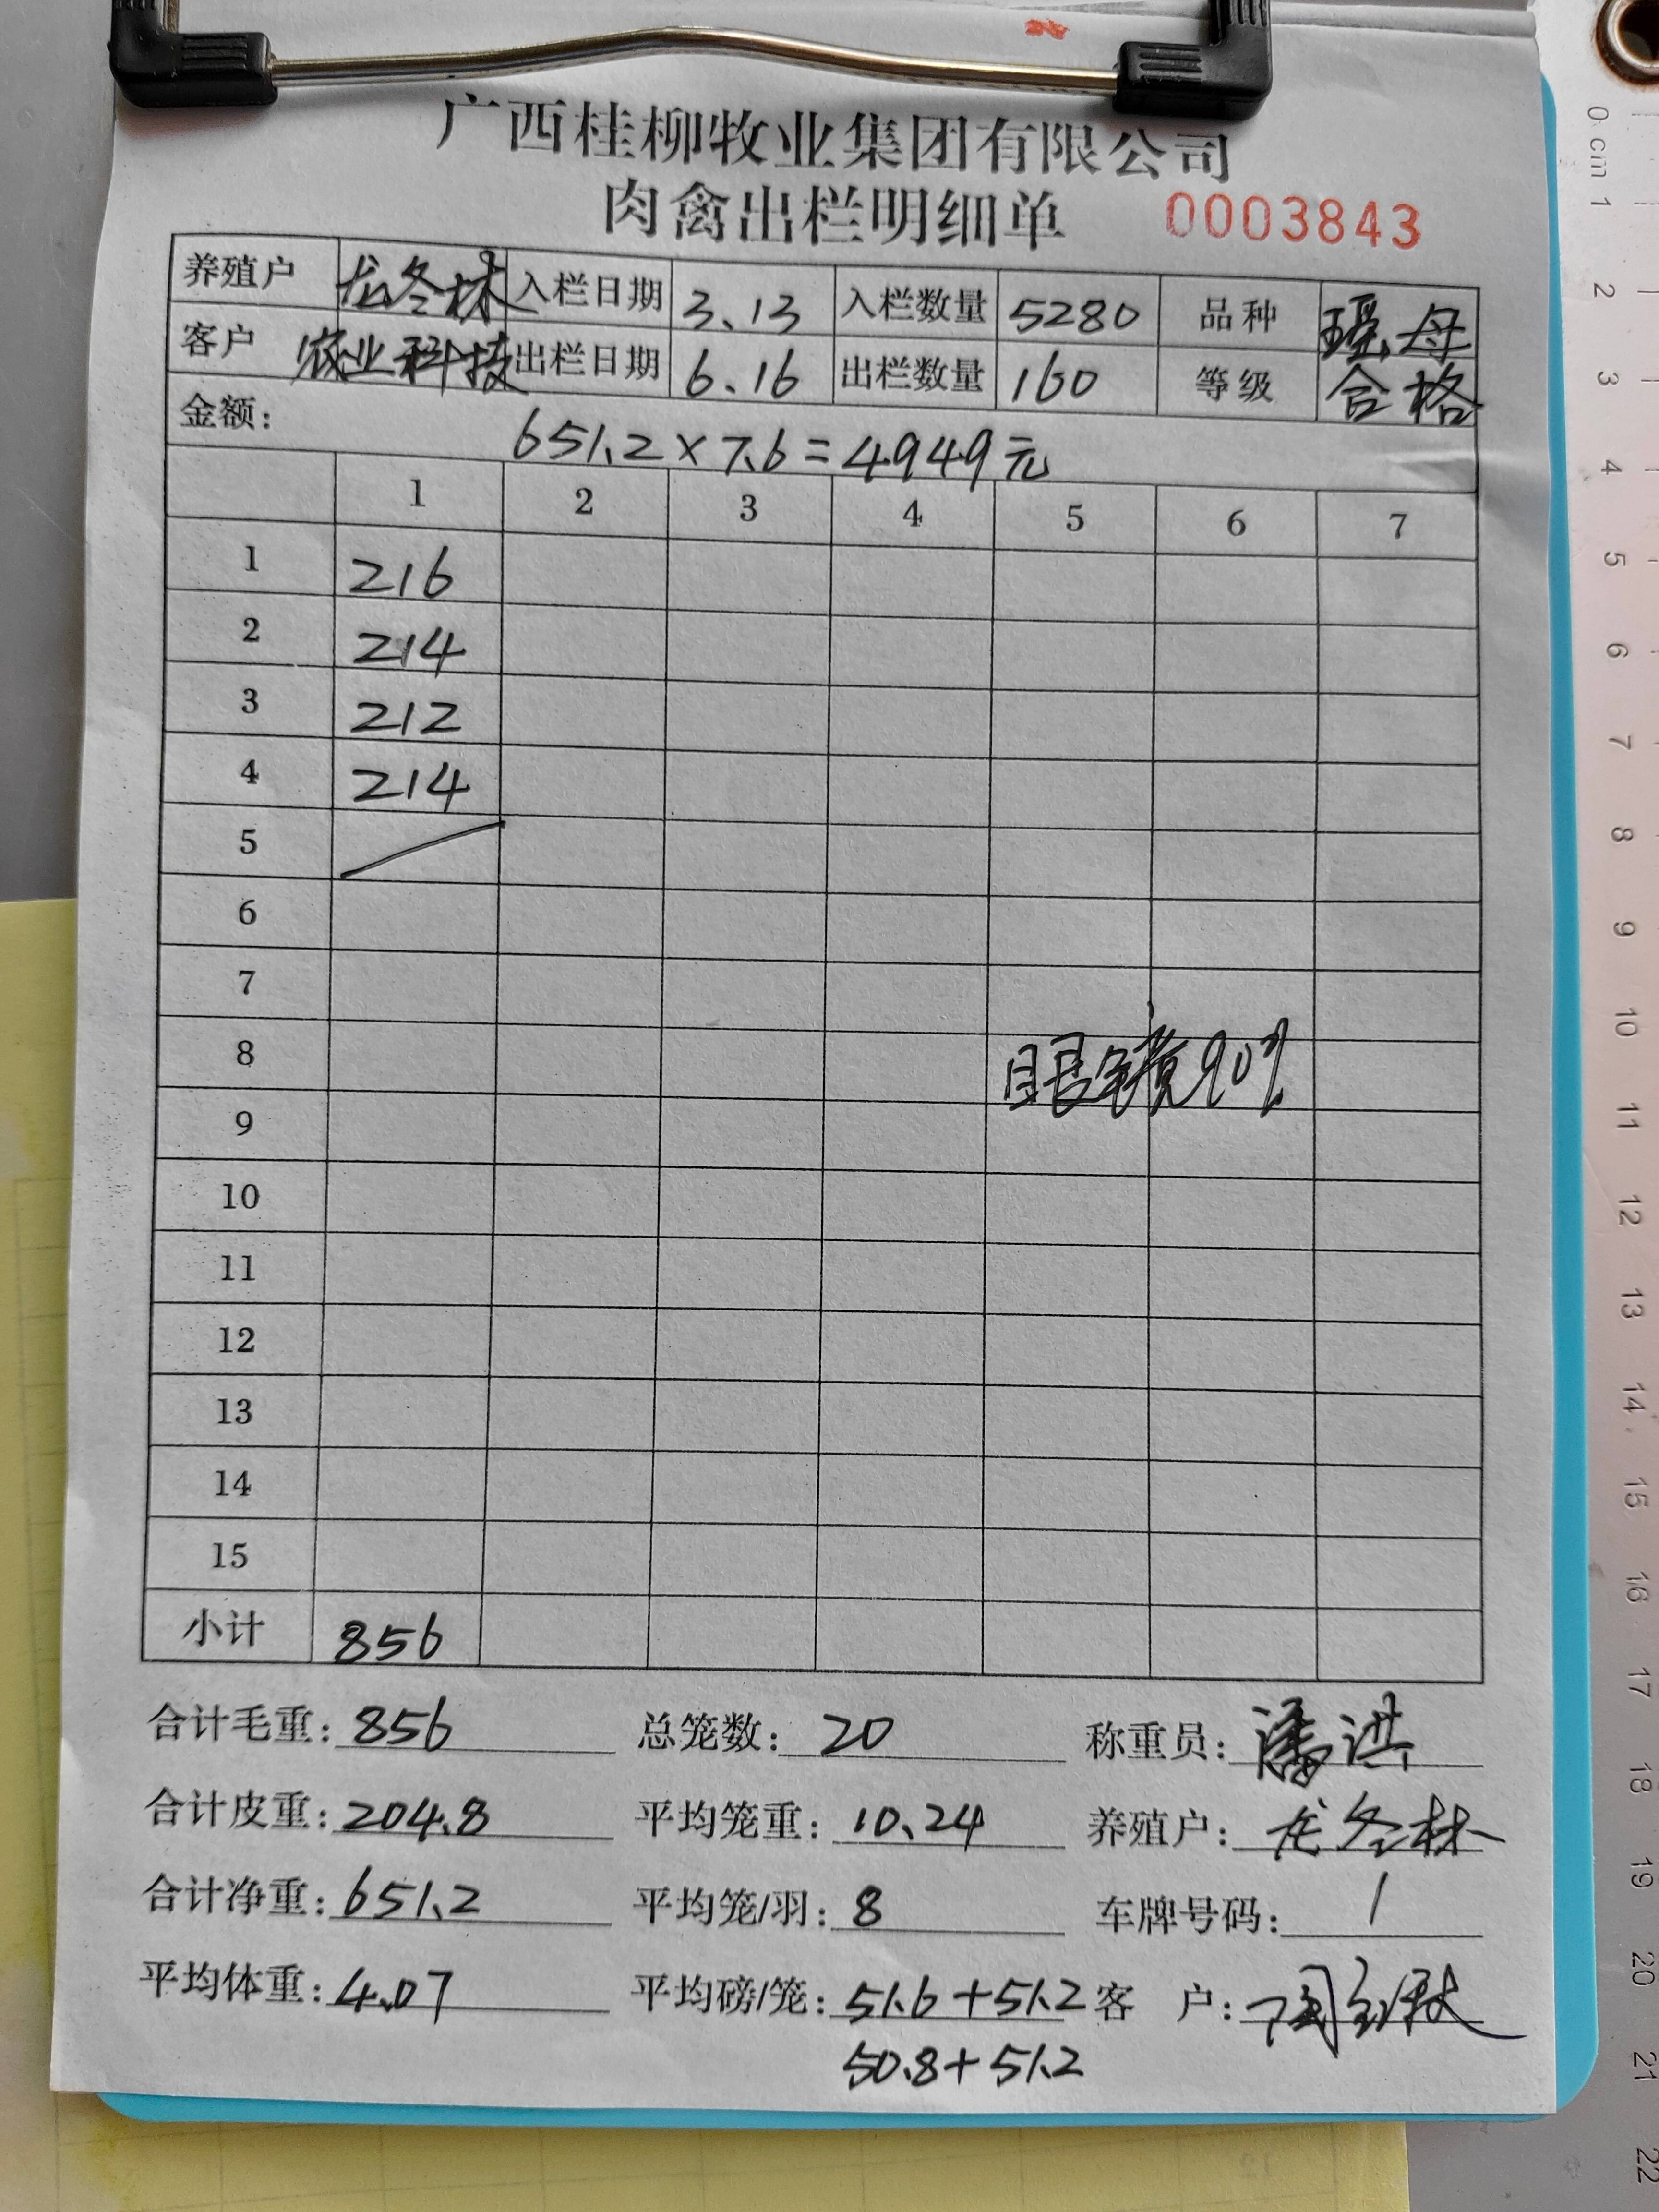 广西桂柳牧业集团有限公司
肉禽出栏明细单 0003843
养殖户 龙冬林 入栏日期 3.13 入栏数量 5280 品种 瑶母
客户 农业科技 出栏日期 6.16 出栏数量 160 等级 合格
金额: 651.2×7.6=4949元
1 2 3 4 5 6 7
1 216
2 214
3 212
4 214
5
6
7
8 眼镜90%
9
10
11
12
13
14
15
小计 856
合计毛重: 856 总笼数: 20 称重员: 潘洪
合计皮重: 204.8 平均笼重: 10.24 养殖户: 龙冬林
合计净重: 651.2 平均笼/羽: 8 车牌号码: /
平均体重: 4.07 平均磅/笼: 51.6+51.2 客 户:
50.8+51.2
0 cm 1 2 3 4 5 6 7 8 9 10 11 12 13 14 15 16 17 18 19 20 21 22